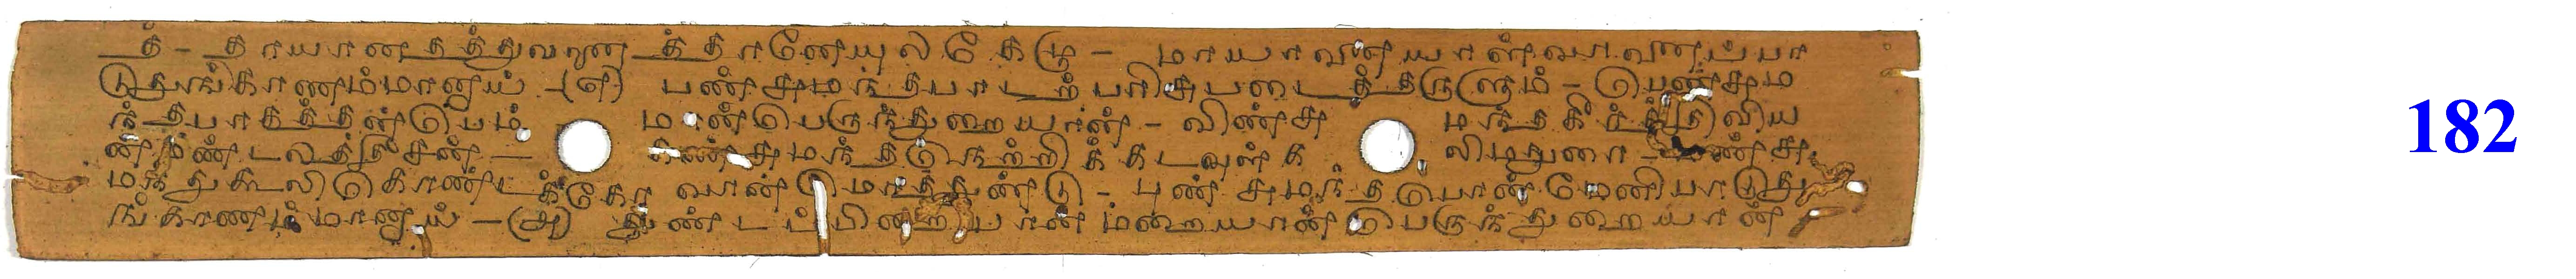 த் - தாயானதத்துவனைத்தானேயுலகேழு - மாயானையாள்வானைப்பா
டுதுங்காணம்மானாய் - (எ) பண்சுமந்தபாடற்பரிசுபடைத்தருளும் - பெண்சும
ந்தபாகத்தன்பெம் மான்பெருந்துறையான் - விண்சு மந்தகீர்த்திவிய
ன்மண்டலத்தீசன் - கண்சுமந்தநெற்றிக்கடவுள்க லிமதுரை - மண்சு
மந்துகூலிகொண்டக்கோ வான்மொத்துண்டு - புண்சுமந்தபொன்மேனிபாடுது
ங்காணம்மானாய் - (அ) துண்டப்பிறையான்மறையான்பெருந்துறையான்
182